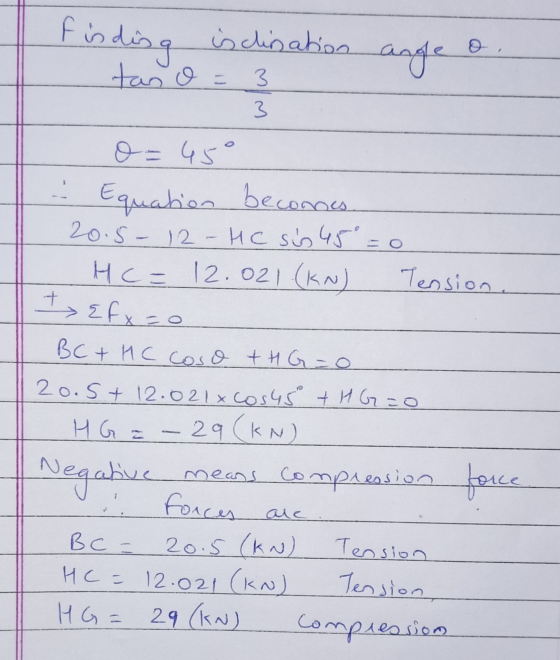 Finding inclination angle θ.
tan θ = 3/3
θ = 45°
∴ Equation becomes
20.5 - 12 - HC sin 45° = 0
HC = 12.021 (KN) Tension.
+→ Σfx = 0
BC + HC cosθ + HG = 0
20.5 + 12.021 x cos45° + HG = 0
HG = - 29 (KN)
Negative means compression force
∴ forces are.
BC = 20.5 (KN) Tension
HC = 12.021 (KN) Tension,
HG = 29 (KN) compression